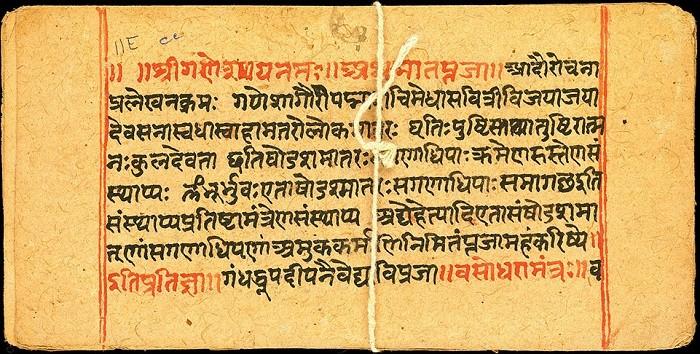 ११E
॥ ॥श्रीगणेशायनमः॥ ॥आदौरोचना
प्रलेखनक्रमः गणेशागौरी चिमेधासवित्रीविजयाजया
देवसनास्वधास्वाहामतरोलोक धृतिःपुष्टि तुष्टिरात्म
नःकुलदेवता इतिषोडशमातरः गणाधिपाःक्रमेण
स्थाप्यः ॐभूर्भुवःएताषोडशमातरःसगणाधिपाःसमागछतइति
संस्थाप्यप्रतिष्टामंत्रेणसंस्थाप्य अद्येहेत्यादिएतासंषोडशमा
तृणांसगणाधिपणांअमुककर्म निमितंपूजामहंकरिष्ये॥
इतिप्रतिज्ञा॥गंधधूपदीपनैवेद्यविपूजा॥वसोधरामंत्रः॥व